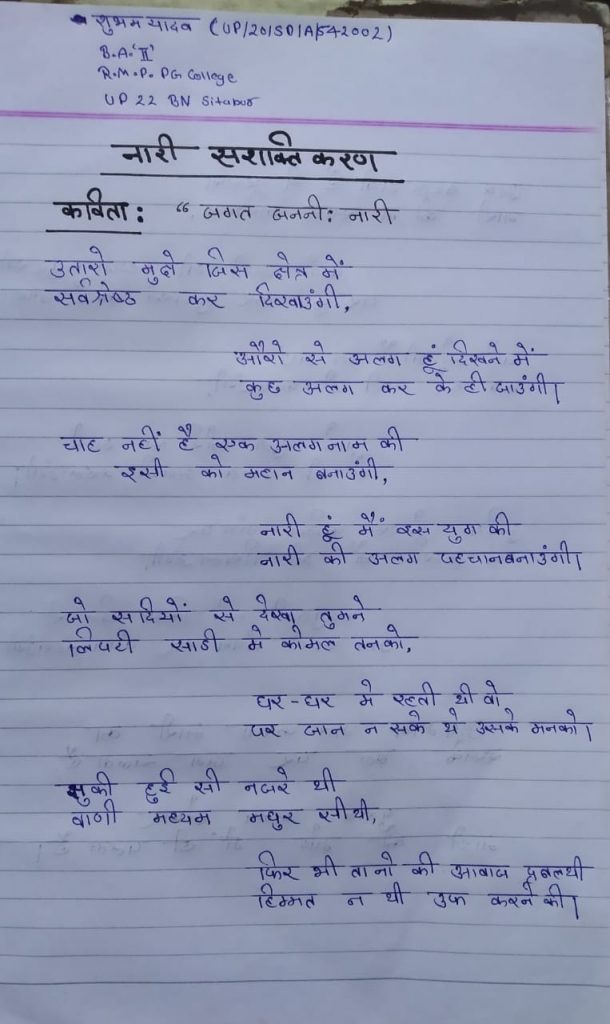 शुभम यादव (UP/20/SD/A/542002)
B.A.'II'
R.M.P. PG College
UP 22 BN Sitapur
नारी सशक्तिकरण
कविता : “ जगत जननी: नारी
उतारो मुझे जिस क्षेत्र में
सर्वश्रेष्ठ कर दिखाउंगी,
औरो से अलग हूं दिखने में
कुछ अलग कर के ही जाउंगी।
चाह नहीं है एक अलग नाम की
इसी को महान बनाउंगी,
नारी हूं मैं इस युग की
नारी की अलग पहचान बनाउंगी।
जो सदियों से देखा तुमने
लिपटी साडी मे कोमल तन को,
घर-घर मे रहती थी वो
पर जान न सके थे उसके मन को।
झुकी हुई सी नजरे थी
वाणी मध्यम मधुर सी थी,
फिर भी तानो की आवाज प्रबल थी
हिम्मत न थी उफ करने की।